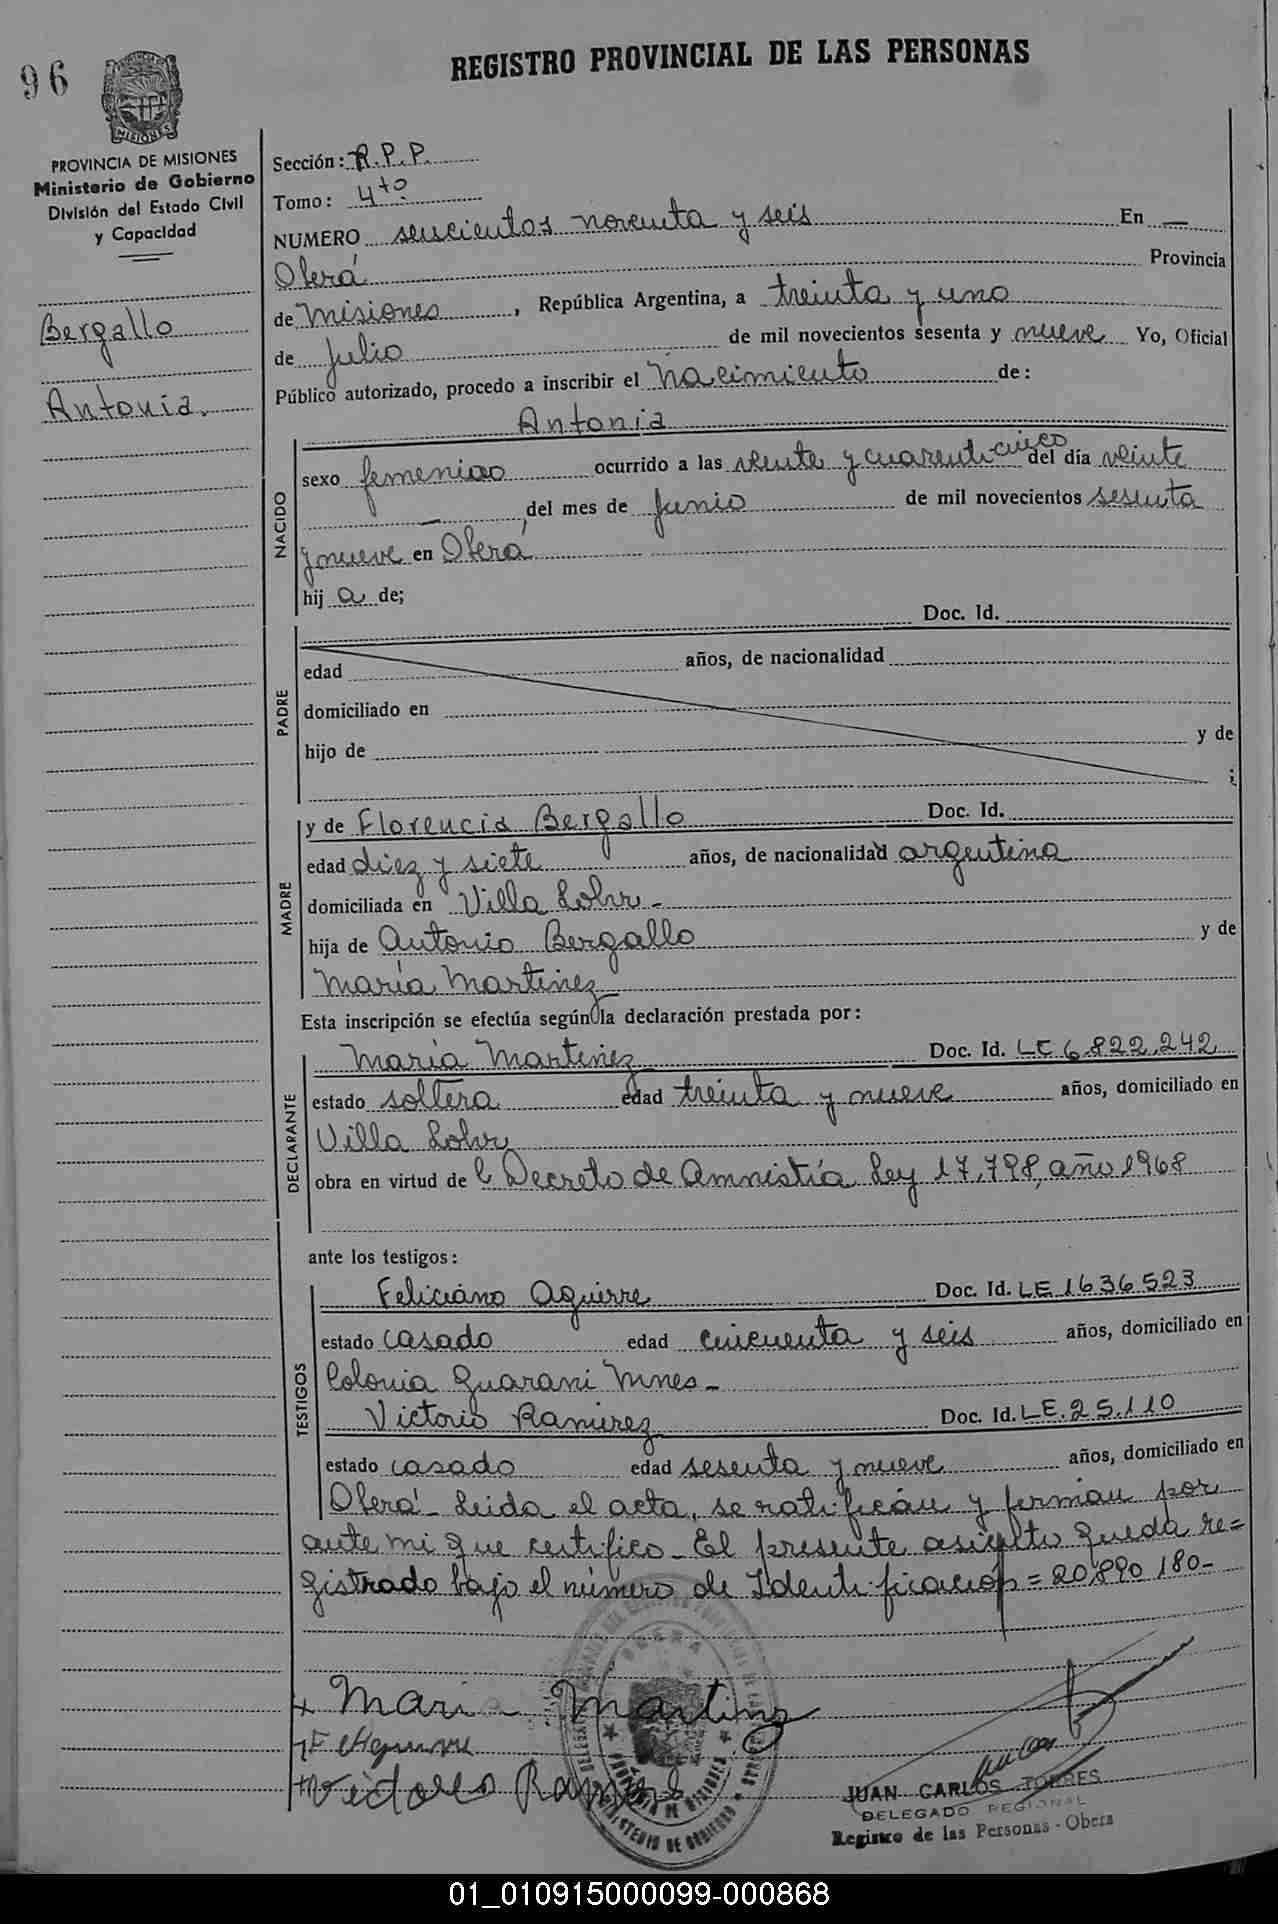 96
REGISTRO PROVINCIAL DE LAS PERSONAS
MISIONES
PROVINCIA DE MISIONES
Ministerio de Gobierno
División del Estado Civil
y Capacidad
Bergallo
Antonia.
Sección: R.P.P.
Tomo: 4to
NUMERO seiscientos noventa y seis En —
Oberá Provincia
de Misiones, República Argentina, a treinta y uno
de Julio de mil novecientos sesenta y nueve Yo, Oficial
Público autorizado, procedo a inscribir el Nacimiento de:
Antonia
NACIDO
sexo femenino ocurrido a las veinte y cuarenticinco del día veinte
— del mes de Junio de mil novecientos sesenta
y nueve en Oberá
hij a de;
PADRE
Doc. Id.
edad años, de nacionalidad
domiciliado en
hijo de y de
;
MADRE
y de Florencia Bergallo Doc. Id.
edad diez y siete años, de nacionalidad argentina
domiciliada en Villa Lohr -
hija de Antonio Bergallo y de
María Martinez
Esta inscripción se efectúa según la declaración prestada por:
DECLARANTE
María Martinez Doc. Id. LC 6.822.242
estado soltera edad treinta y nueve años, domiciliado en
Villa Lohr
obra en virtud de l Decreto de Amnistía Ley 17.798, año 1968
ante los testigos:
TESTIGOS
Feliciano Aguirre Doc. Id. LE 1636523
estado casado edad cincuenta y seis años, domiciliado en
Colonia Guarani Mnes -
Victorio Ramirez Doc. Id. LE. 25.110
estado casado edad sesenta y nueve años, domiciliado en
Oberá - Leida el acta, se ratifican y firman por
ante mi que certifico - El presente asiento queda re=
gistrado bajo el número de Identificación = 20.890.180 -
x Maria Martinz
Victorio Ramirez
JUAN CARLOS TORRES
DELEGADO REGIONAL
Registro de las Personas - Obera
01_010915000099-000868